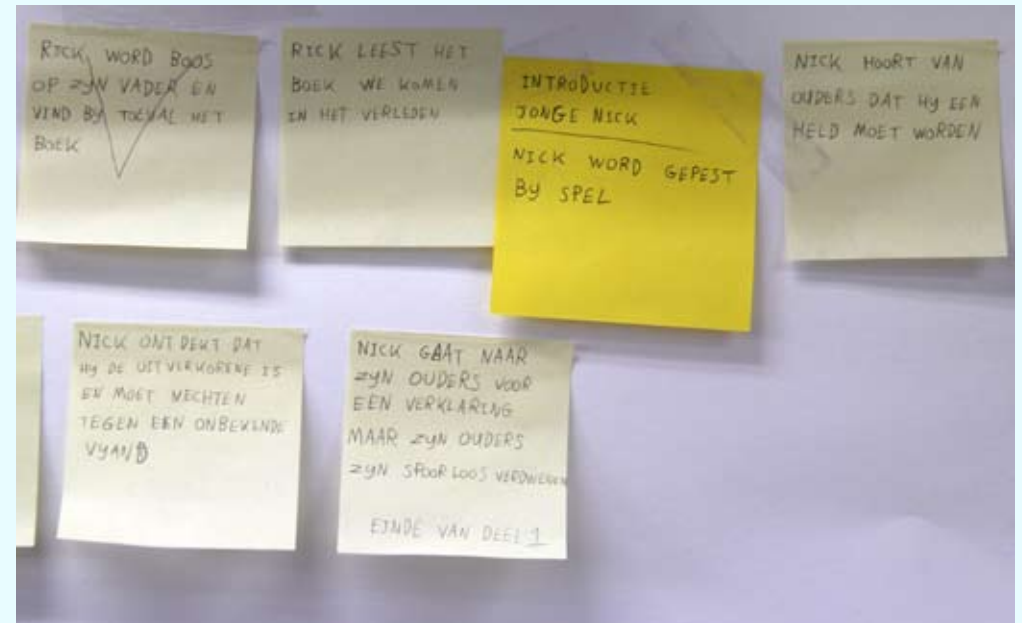 RICK, WORD BOOS
OP ZYN VADER EN
VIND BY TOEVAL HET
BOEK
RICK LEEST HET
BOEK WE KOMEN
IN HET VERLEDEN
INTRODUCTIE
JONGE NICK
NICK WORD GEPEST
BY SPEL
NICK HOORT VAN
OUDERS DAT HY EEN
HELD MOET WORDEN
NICK ONTDEKT DAT
HY DE UITVERKORENE IS
EN MOET VECHTEN
TEGEN EEN ONBEKENDE
VYAND
NICK GAAT NAAR
ZYN OUDERS VOOR
EEN VERKLARING
MAAR ZYN OUDERS
ZYN SPOORLOOS VERDWENEN
EINDE VAN DEEL 1